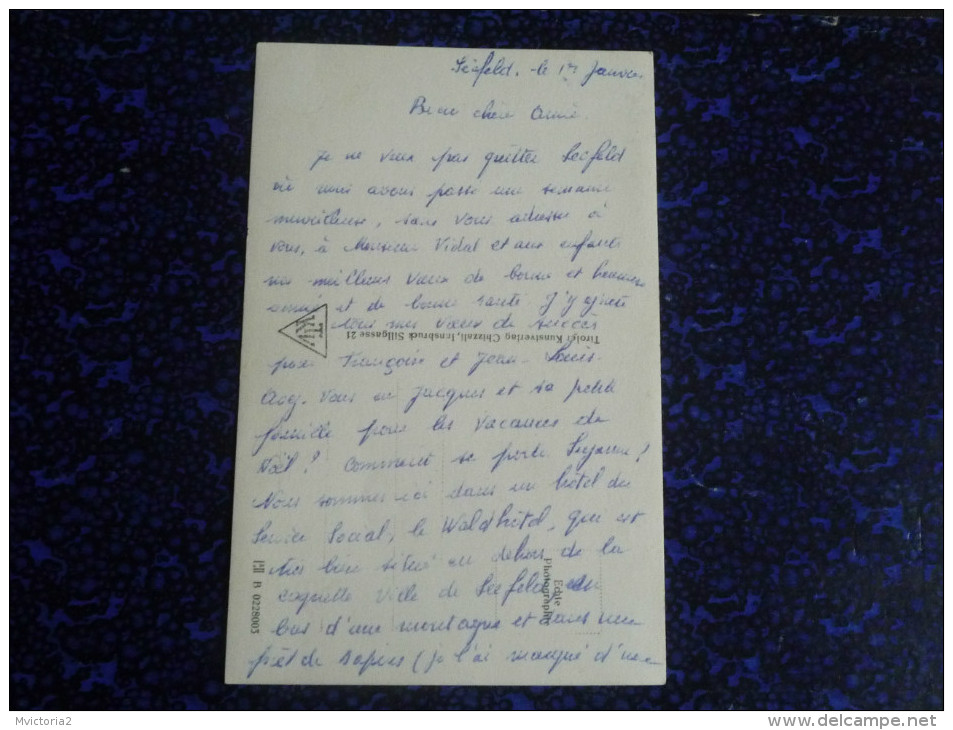 Séefeld, le 1er Janvier
Bien chère Amie.
Je ne veux pas quitter Seefeld
où nous avons passé une semaine
merveilleuse, sans vous adresser à
vous, à Monsieur Vidal et aux enfants
nos meilleurs vœux de bonne et heureuse
année et de bonne santé. J'y ajoute
tous mes vœux de succès
pour François et Jean-Louis.
Avez-vous eu Jacques et sa petite
famille pour les vacances de
Noël? Comment se porte Suzanne?
Nous sommes ici dans un hôtel du
Service Social, le Waldhôtel, qui est
très bien situé en dehors de la
coquette ville de Seefeld au
bas d'une montagne et dans une
forêt de sapins (je l'ai marqué d'une
TKV
Tiroler Kunstverlag Chizzali, Innsbruck Sillgasse 21
Echte
Photographie
B 0229003
Mvictoria2
http://www.delcampe.net